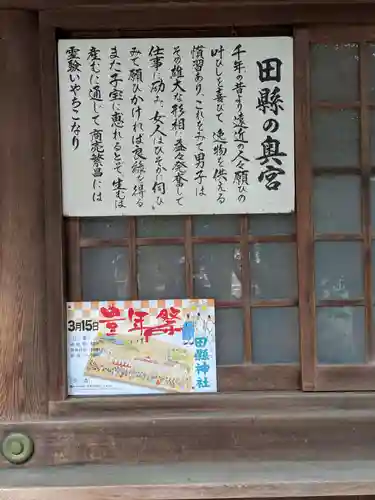 田縣の奥宮
千年の昔より遠近の人々願ひの
叶ひしを喜びて 造物を供える
慣習あり、これをみて男子は
その雄大な形相に益々発奮して
仕事に励み、女人はひそかに伺ひ
みて願ひかければ良縁を得る
また子宝に恵れるとぞ 生むは
産むに通じて 商売繁昌には
霊験いやちこなり
3月15日
豊年祭
田縣神社